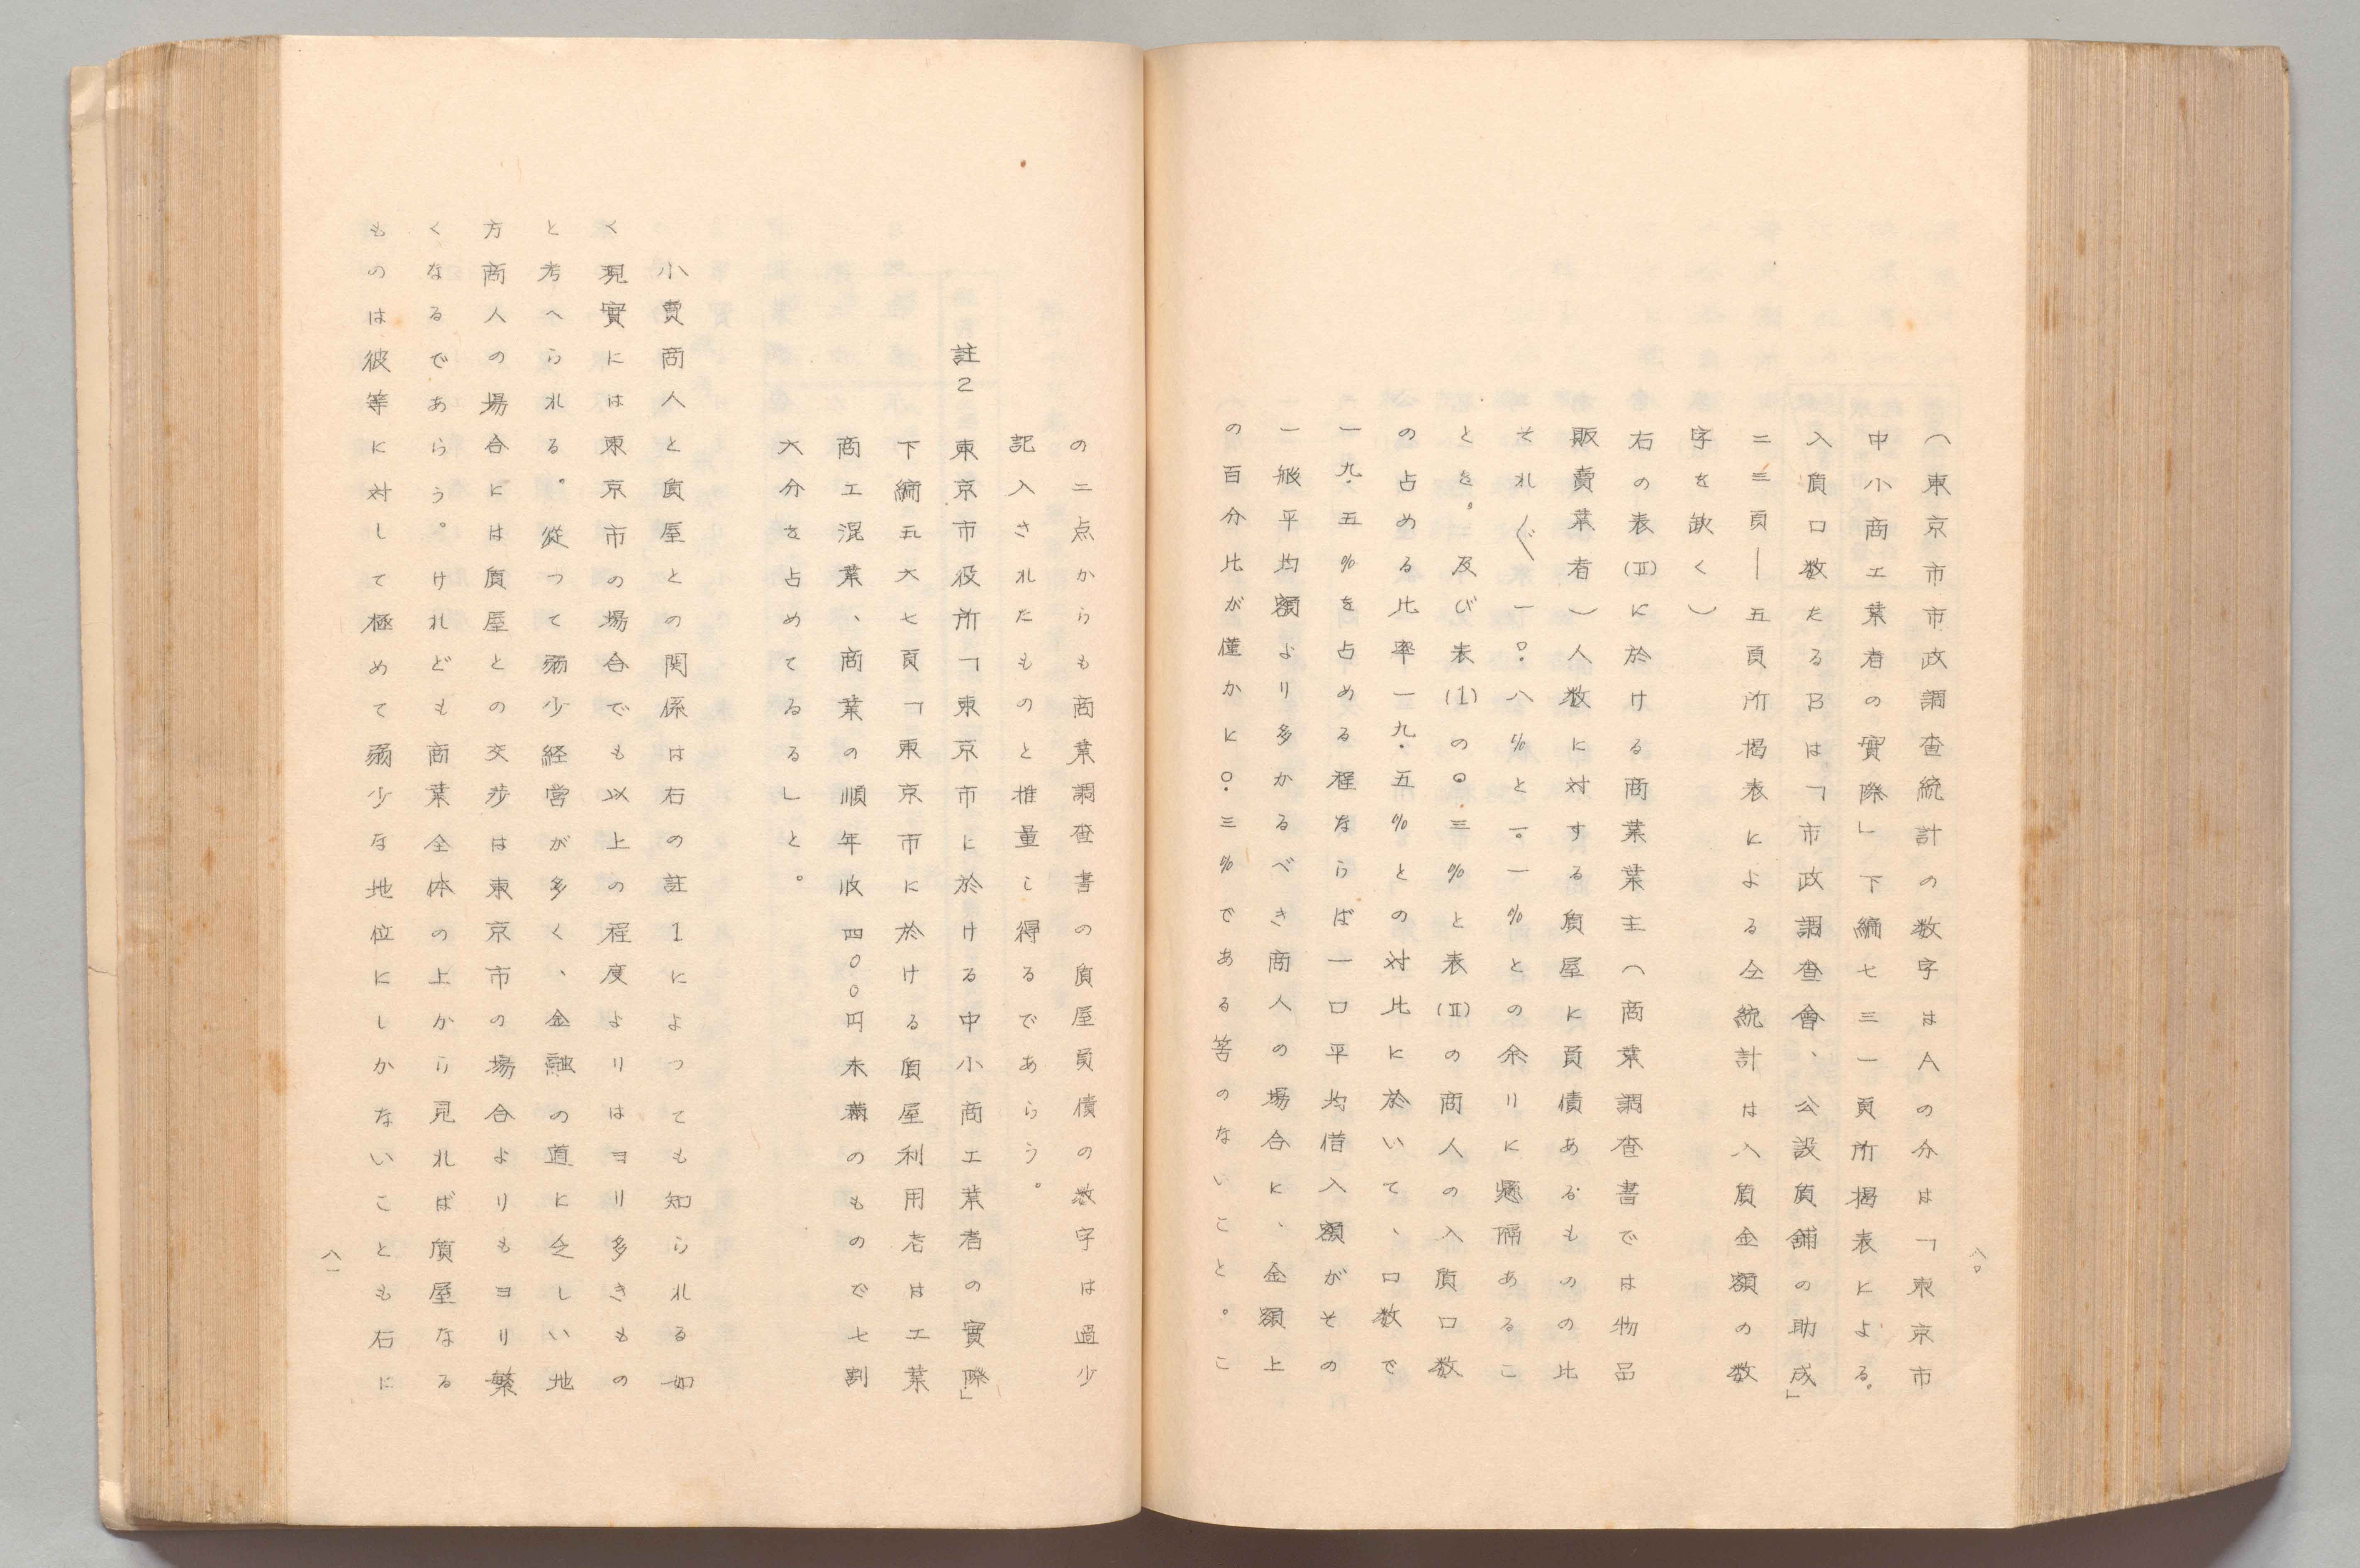 八〇
(東京市市政調査統計の数字はAの分は「東京市
中小商工業者の實際」下編七三一頁所掲表による。
入質口数たるBは「市政調査會、公設質舗の助成」
二三頁—五頁所掲表による全統計は入質金額の数
字を欠く)
右の表(Ⅱ)に於ける商業業主(商業調査書では物品
販賣業者)人数に対する質屋に負債あるものの比
それ〲一〇.八%と一。一%との余りに懸隔あるこ
とを。及び表(1)の〇.三%と表(Ⅱ)の商人の入質口数
の占める比率一九.五%との対比に於いて、口数で
一九.五%を占める程ならば一口平均借入額がその
一般平均額より多かるべき商人の場合に、金額上
の百分比が僅かに〇.三%である筈のないこと。こ
の二点からも商業調査書の質屋負債の数字は過少
記入されたものと推量し得るであらう。
註2 東京市役所「東京市に於ける中小商工業者の實際」
下編五六七頁「東京市に於ける質屋利用者は工業
商工混業、商業の順年收四〇〇円未満のもので七割
六分を占めてゐる」と。
小賣商人と質屋との関係は右の註1によつても知られる如
く現實には東京市の場合でも以上の程度よりはヨリ多きもの
と考へられる。従つて弱少経営が多く、金融の道に乏しい地
方商人の場合には質屋との交渉は東京市の場合よりもヨリ繁
くなるであらう。けれども商業全体の上から見れば質屋なる
ものは彼等に対して極めて弱少な地位にしかないことも右に
八一